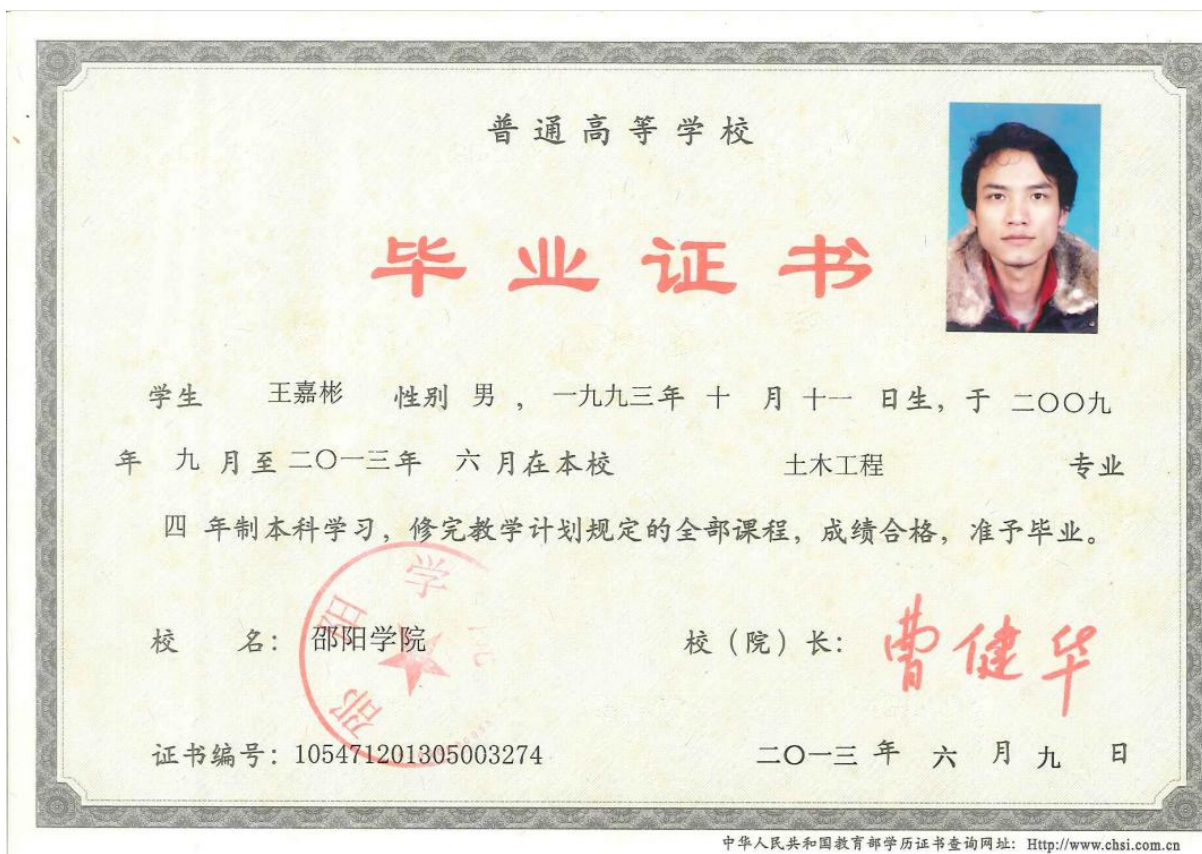 普通高等学校
毕业证书
学生 王嘉彬 性别 男 ，一九九三年 十 月 十一 日生，于 二〇〇九
年 九 月至 二〇一三年 六 月在本校 土木工程 专业
四 年制本科学习，修完教学计划规定的全部课程，成绩合格，准予毕业。
邵阳学
校 名： 邵阳学院 校（院）长： 曹健华
证书编号：105471201305003274 二〇一三 年 六 月 九 日
中华人民共和国教育部学历证书查询网址：Http://www.chsi.com.cn